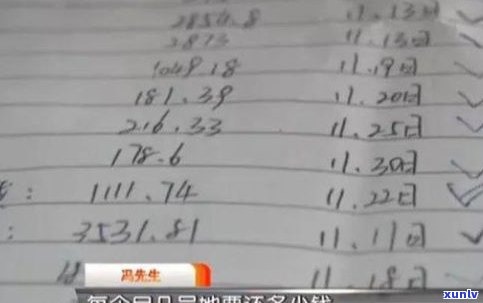 2854.8 11.13日
2873 11.13日
1049.18 11.19日
181.39 11.20日
216.33 11.25日
178.6 11.30日
: 1111.74 11.22日
: 3531.81 11.11日
11.18日
冯先生
每个月几号她要还多少钱
xunlv